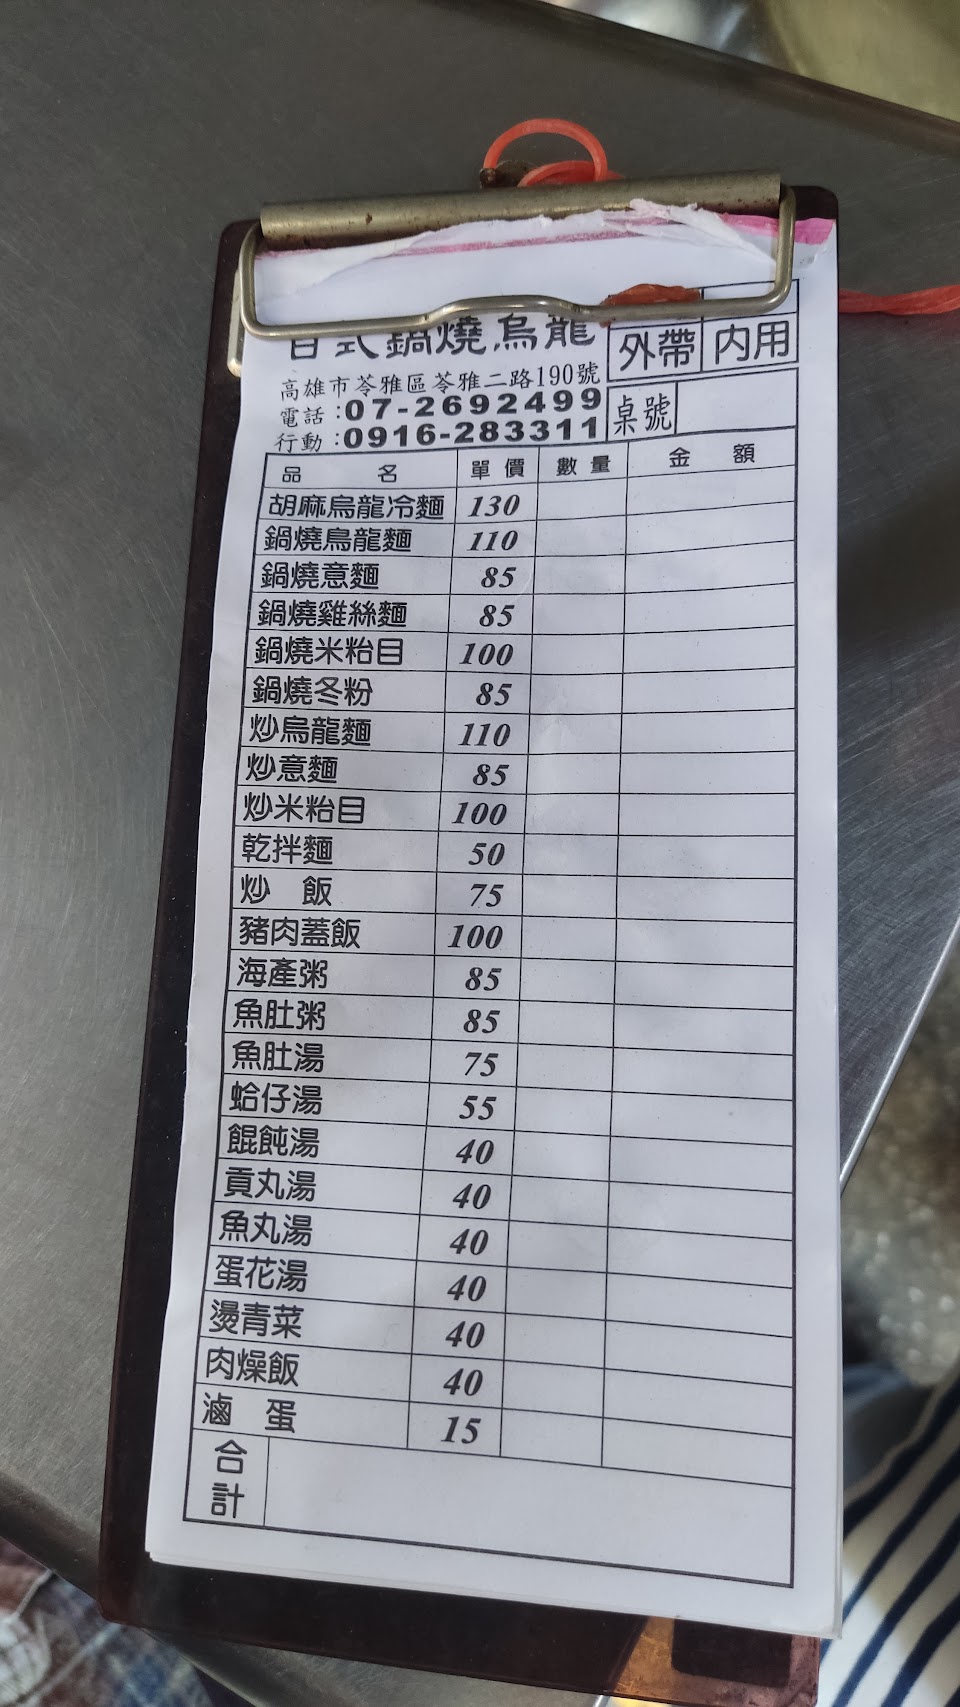 日式鍋燒烏龍
外帶 內用
高雄市苓雅區苓雅二路190號
電話:07-2692499
行動:0916-283311
桌號
品名 單價 數量 金額
胡麻烏龍冷麵 130
鍋燒烏龍麵 110
鍋燒意麵 85
鍋燒雞絲麵 85
鍋燒米粘目 100
鍋燒冬粉 85
炒烏龍麵 110
炒意麵 85
炒米粘目 100
乾拌麵 50
炒飯 75
豬肉蓋飯 100
海產粥 85
魚肚粥 85
魚肚湯 75
蛤仔湯 55
餛飩湯 40
貢丸湯 40
魚丸湯 40
蛋花湯 40
燙青菜 40
肉燥飯 40
滷蛋 15
合計